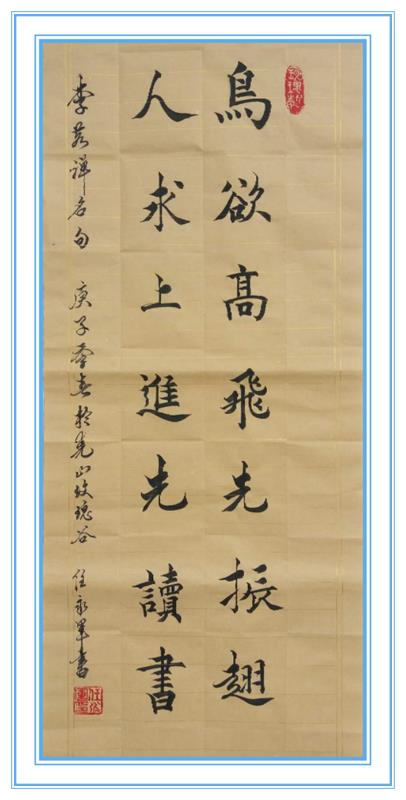 鳥欲高飛先振翅
人求上進先讀書
李苦禅名句 庚子 於 山玫瑰谷 任永 書